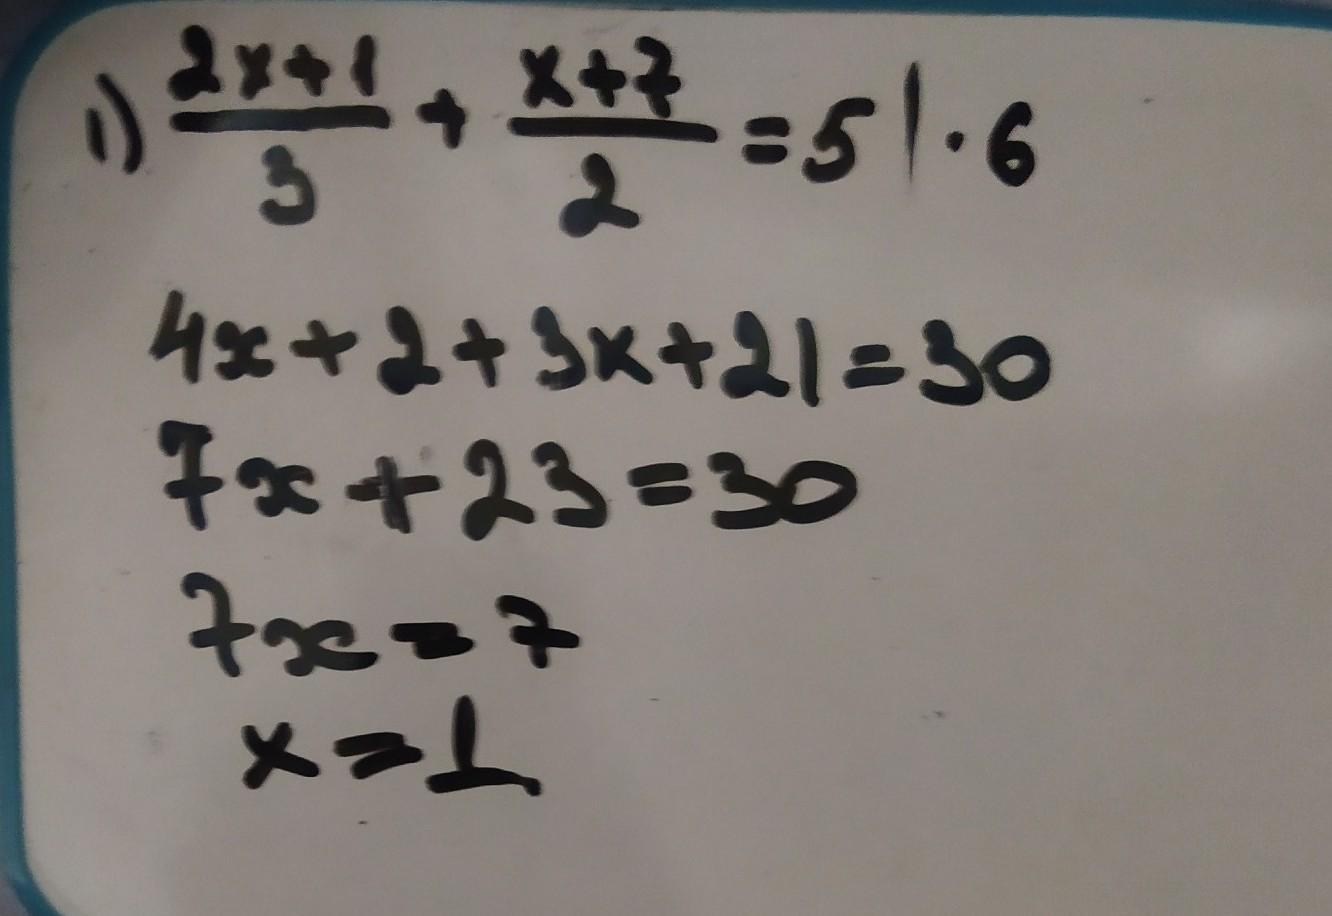 1) (2x+1)/3 + (x+7)/2 = 5 | · 6
4x + 2 + 3x + 21 = 30
7x + 23 = 30
7x = 7
x = 1